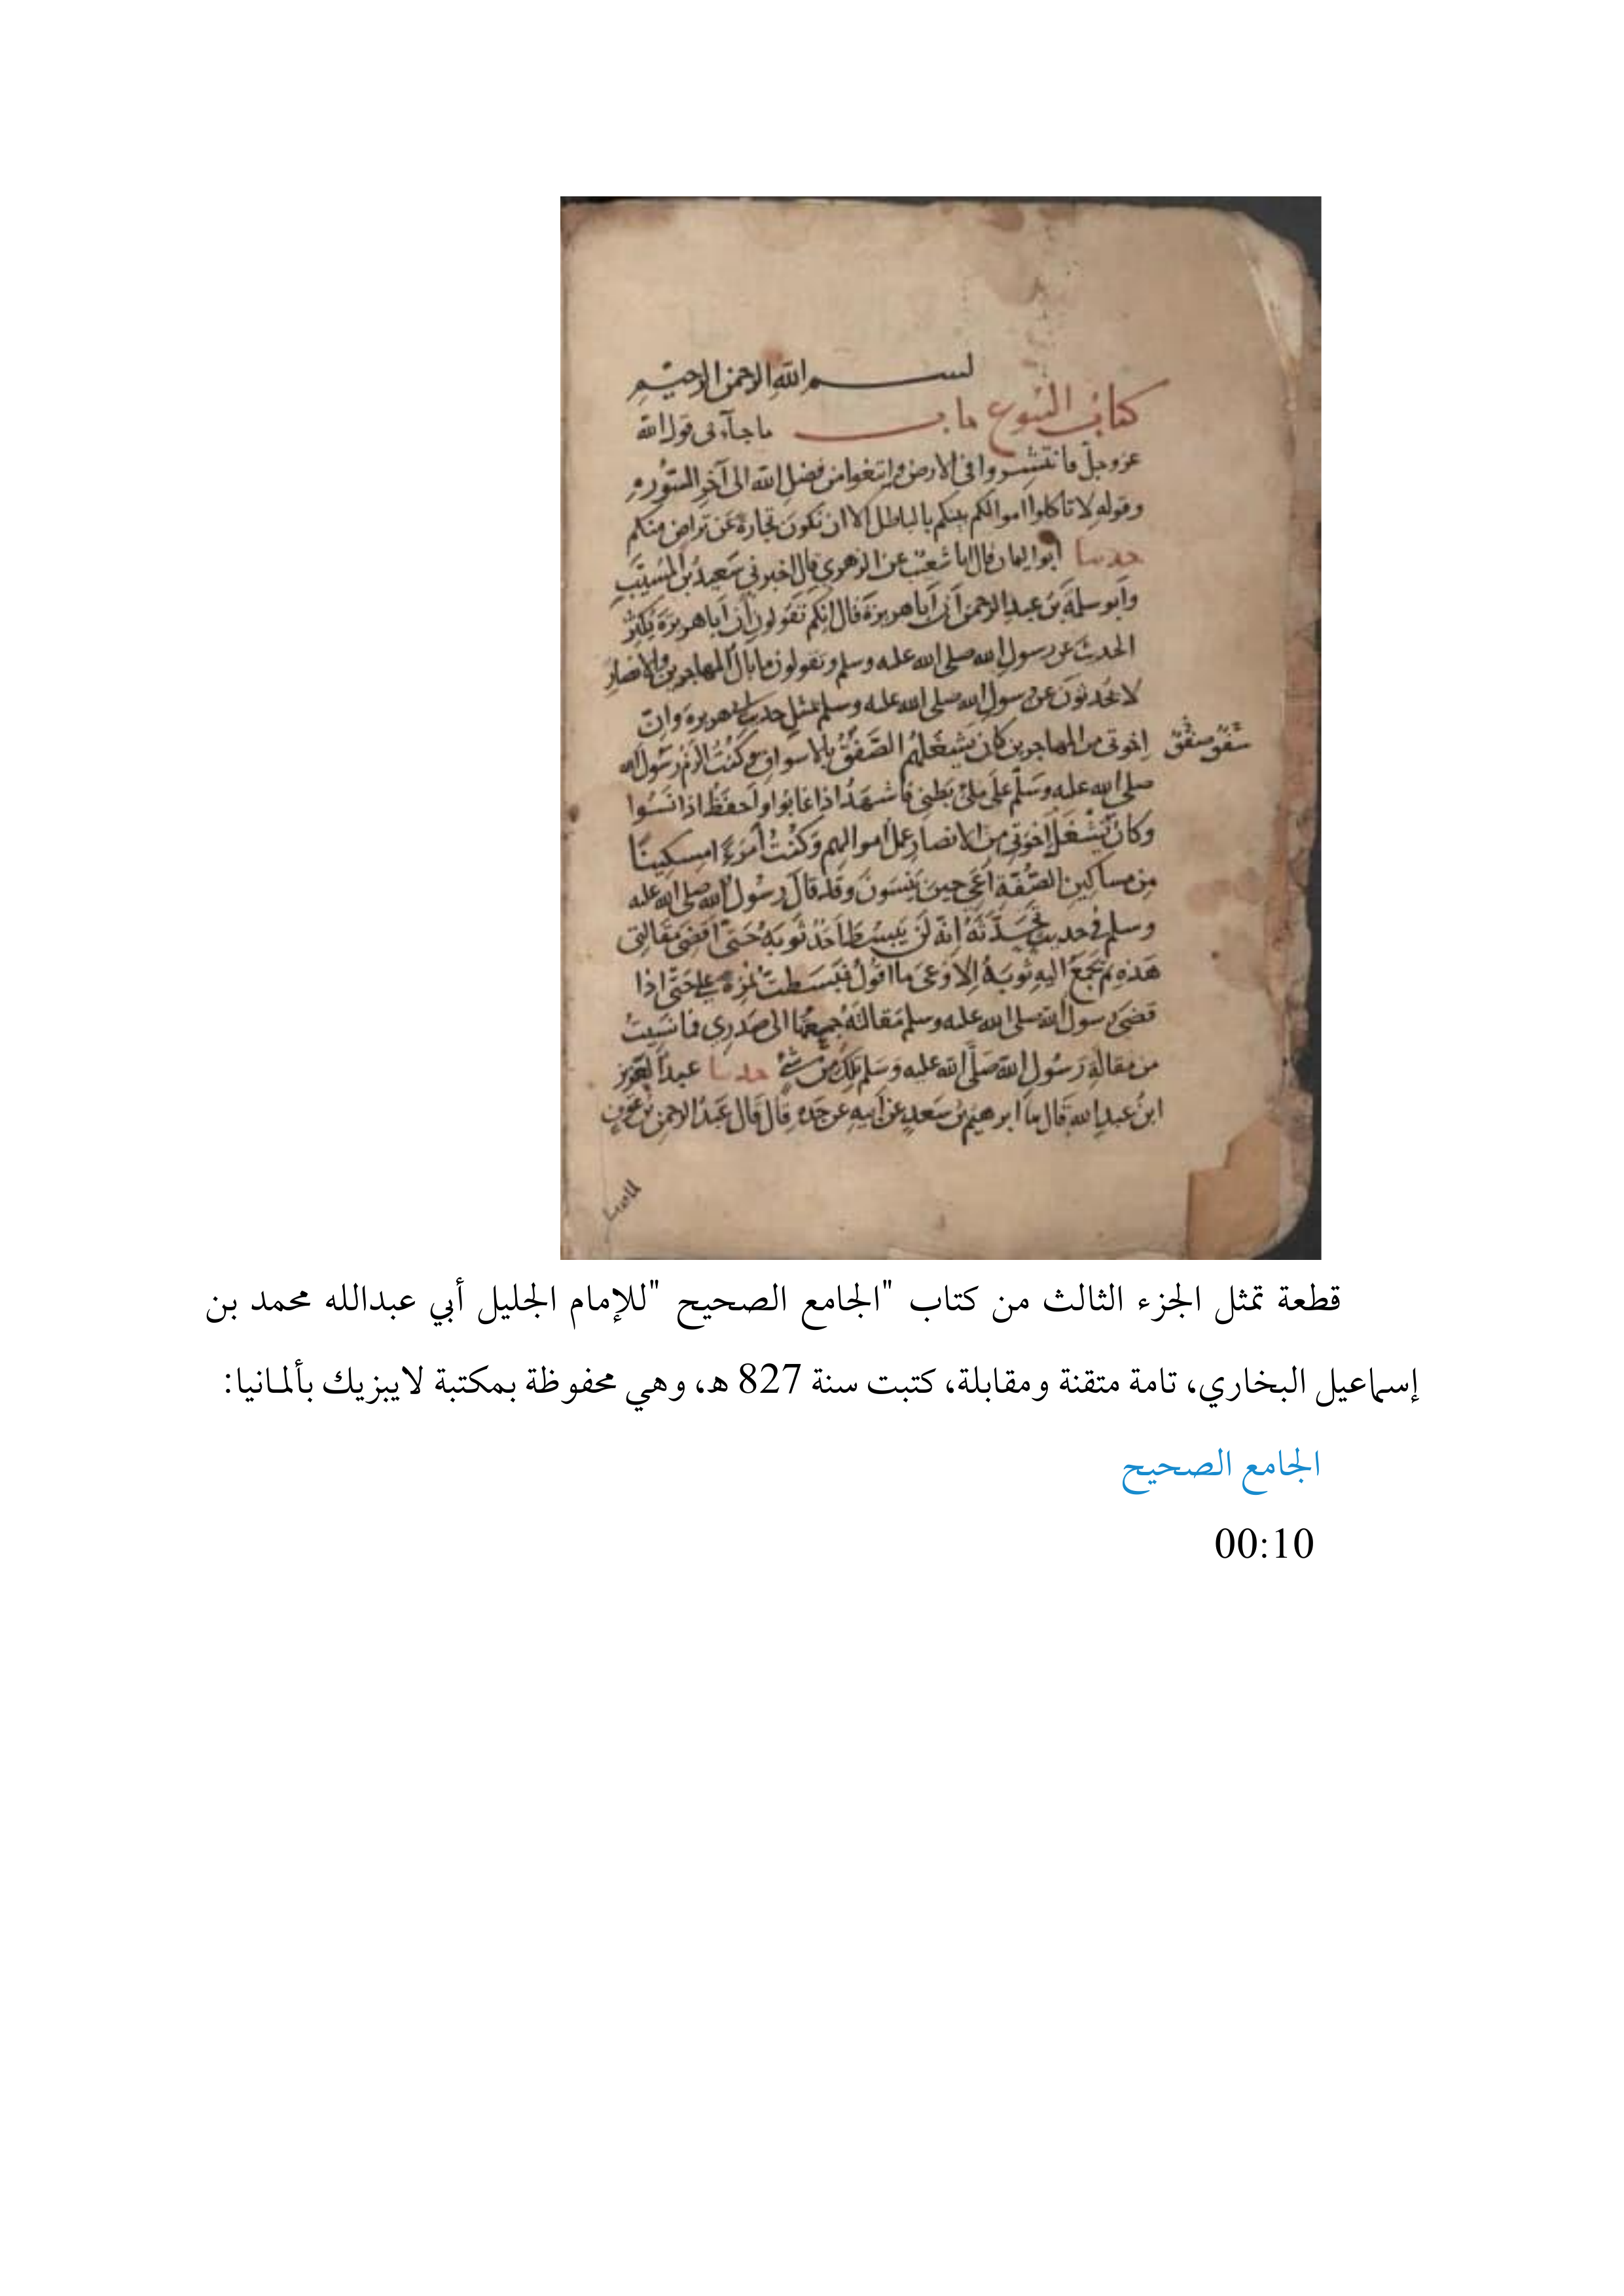 بسم الله الرحمن الرحيم
كتاب البيوع باب ما جآء في قول الله
عز وجل فانتشروا في الارض وابتغوا من فضل الله الى آخر السورة
وقوله لا تاكلوا اموالكم بينكم بالباطل الا ان تكون تجارة عن تراض منكم
حدثنا ابو اليمان قال انا شعيب عن الزهري قال اخبرني سعيد بن المسيب
وابو سلمة بن عبد الرحمن أن أبا هريرة قال إنكم تقولون إن أبا هريرة يكثر
الحديث عن رسول الله صلى الله عليه وسلم وتقولون ما بال المهاجرين والانصار
لا يحدثون عن رسول الله صلى الله عليه وسلم بمثل حديث ابي هريرة وان
اخوتي من المهاجرين كان يشغلهم الصفق بالاسواق وكنت الزم رسول الله
سفق صفق
صلى الله عليه وسلم على ملئ بطني فاشهد اذا غابوا واحفظ اذا نسوا
وكان يشغل اخوتي من الانصار عمل اموالهم وكنت امرءا مسكينا
من مساكين الصفة أعي حين ينسون وقد قال رسول الله صلى الله عليه
وسلم في حديث يحدثه انه لن يبسط احد ثوبه حتى اقضي مقالتي
هذه ثم يجمع اليه ثوبه إلا وعى ما اقول فبسطت نمرة علي حتى اذا
قضى رسول الله صلى الله عليه وسلم مقالته جمعتها الى صدري فما نسيت
من مقالة رسول الله صلى الله عليه وسلم تلك من شيء حدثنا عبد العزيز
ابن عبد الله قال ثنا ابرهيم بن سعد عن أبيه عن جده قال قال عبد الرحمن بن عوف
قطعة تمثل الجزء الثالث من كتاب "الجامع الصحيح "للإمام الجليل أبي عبدالله محمد بن
إسماعيل البخاري، تامة متقنة ومقابلة، كتبت سنة 827 هـ، وهي محفوظة بمكتبة لايبزيك بألمانيا:
الجامع الصحيح
00:10